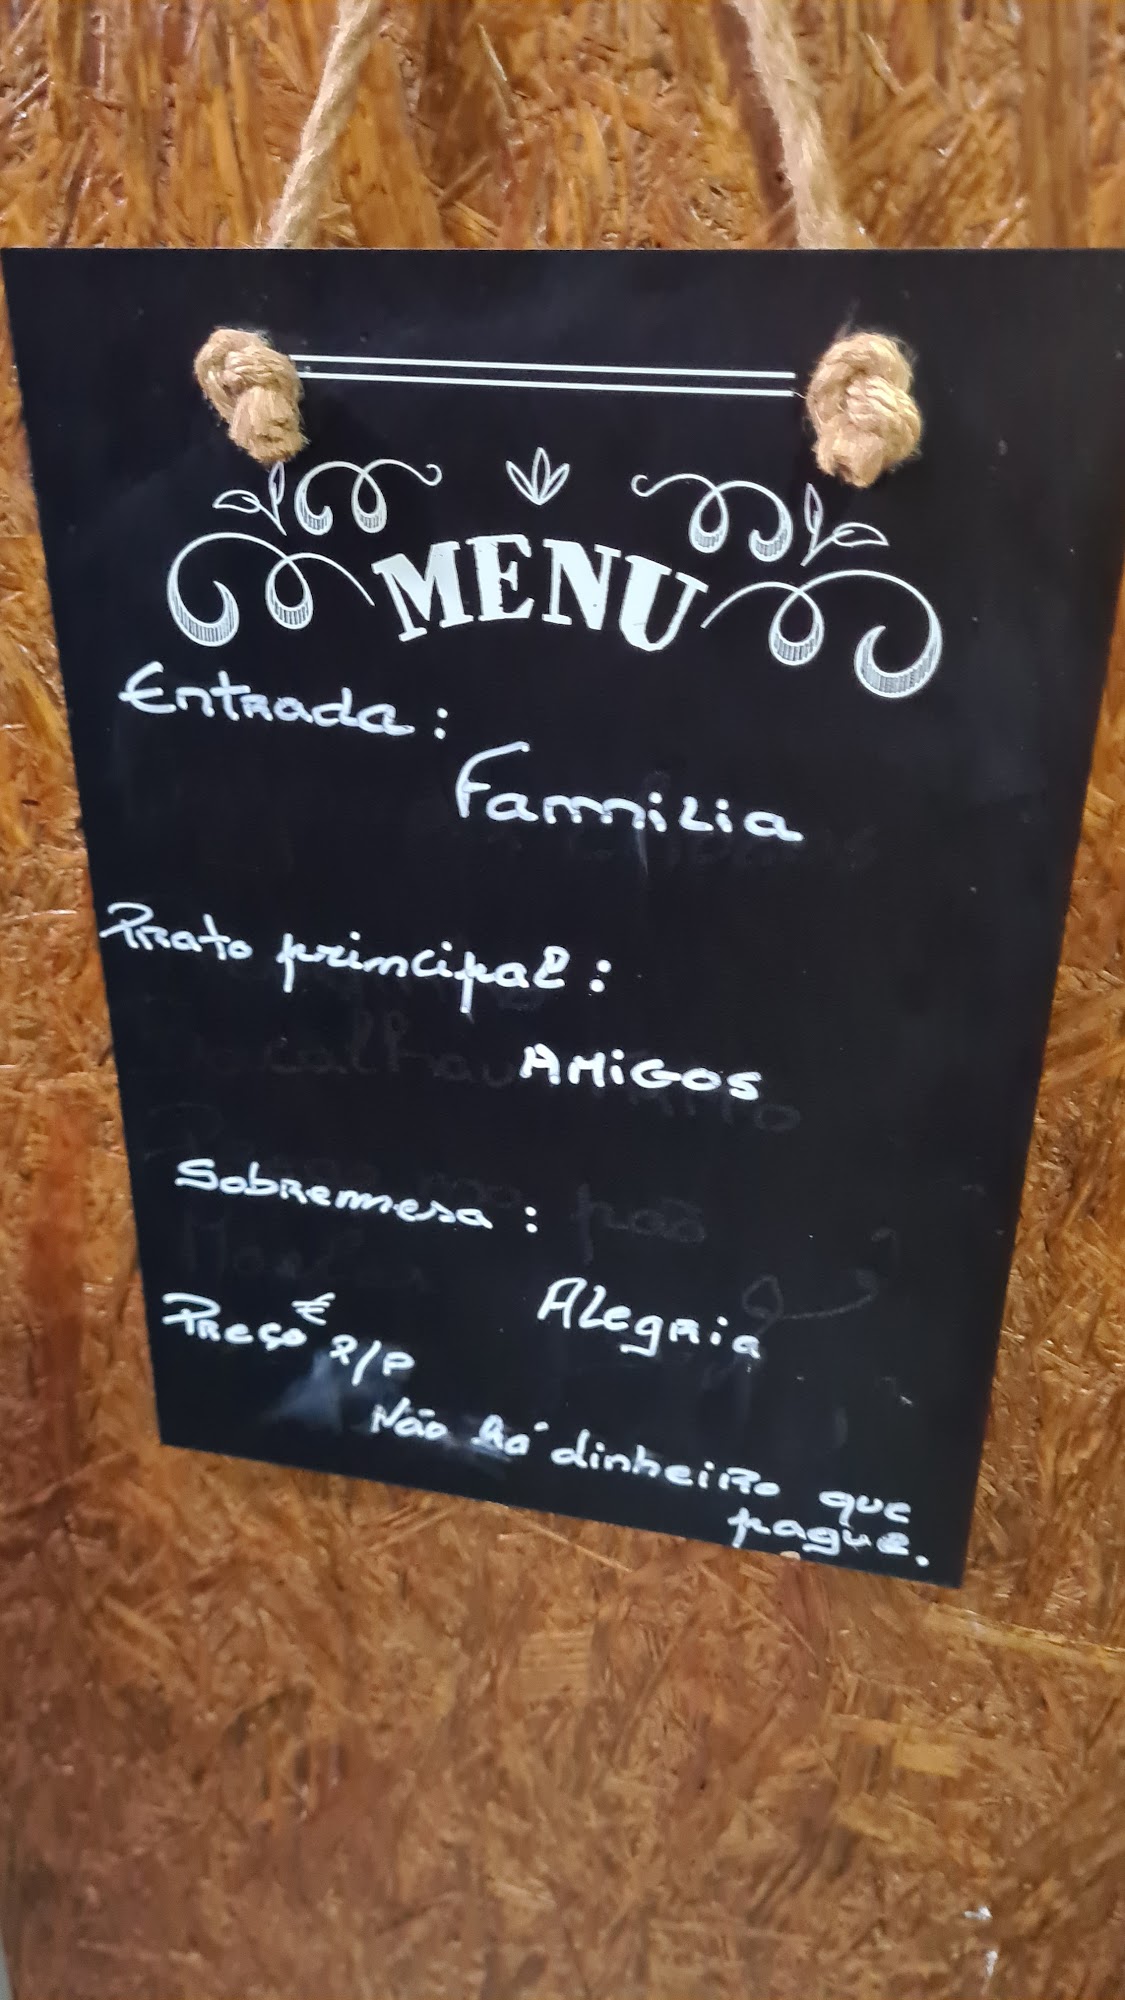 MENU
Entrada :
Familia
Prato principal :
AMiGOS
Sobremesa :
Alegria
Preço € P/P
Não há dinheiro que
pague.